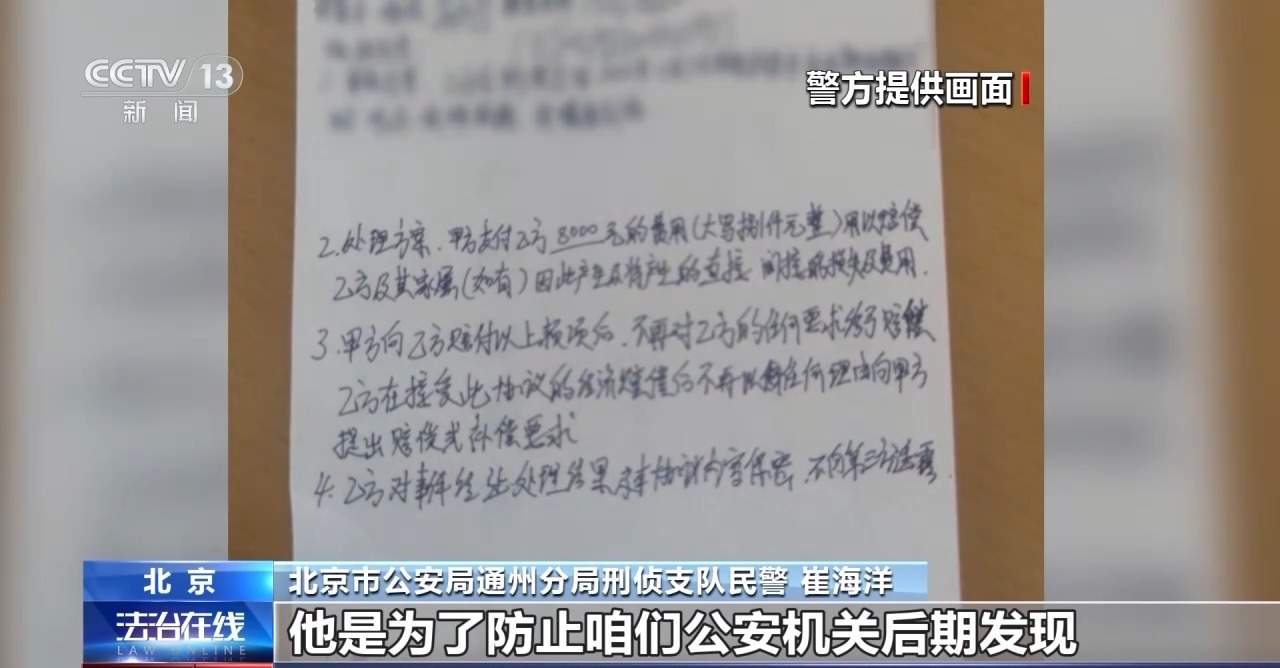 CCTV 13
新闻
警方提供画面
2.处理方案、甲方支付乙方8000元的费用(大写捌仟元整)用以赔偿
乙方及其家属(如有)因此产生及将产生的直接、间接的损失及费用.
3.甲方向乙方赔付以上款项后.不再对乙方的任何要求给予赔偿
乙方在接受此协议的经济赔偿后不再以任何理由向甲方
提出赔偿或补偿要求
4.乙方对事件经过处理结果及本协议内容保密,不向第三方透露.
北京
北京市公安局通州分局刑侦支队民警 崔海洋
法治在线
LAW ONLINE
他是为了防止咱们公安机关后期发现